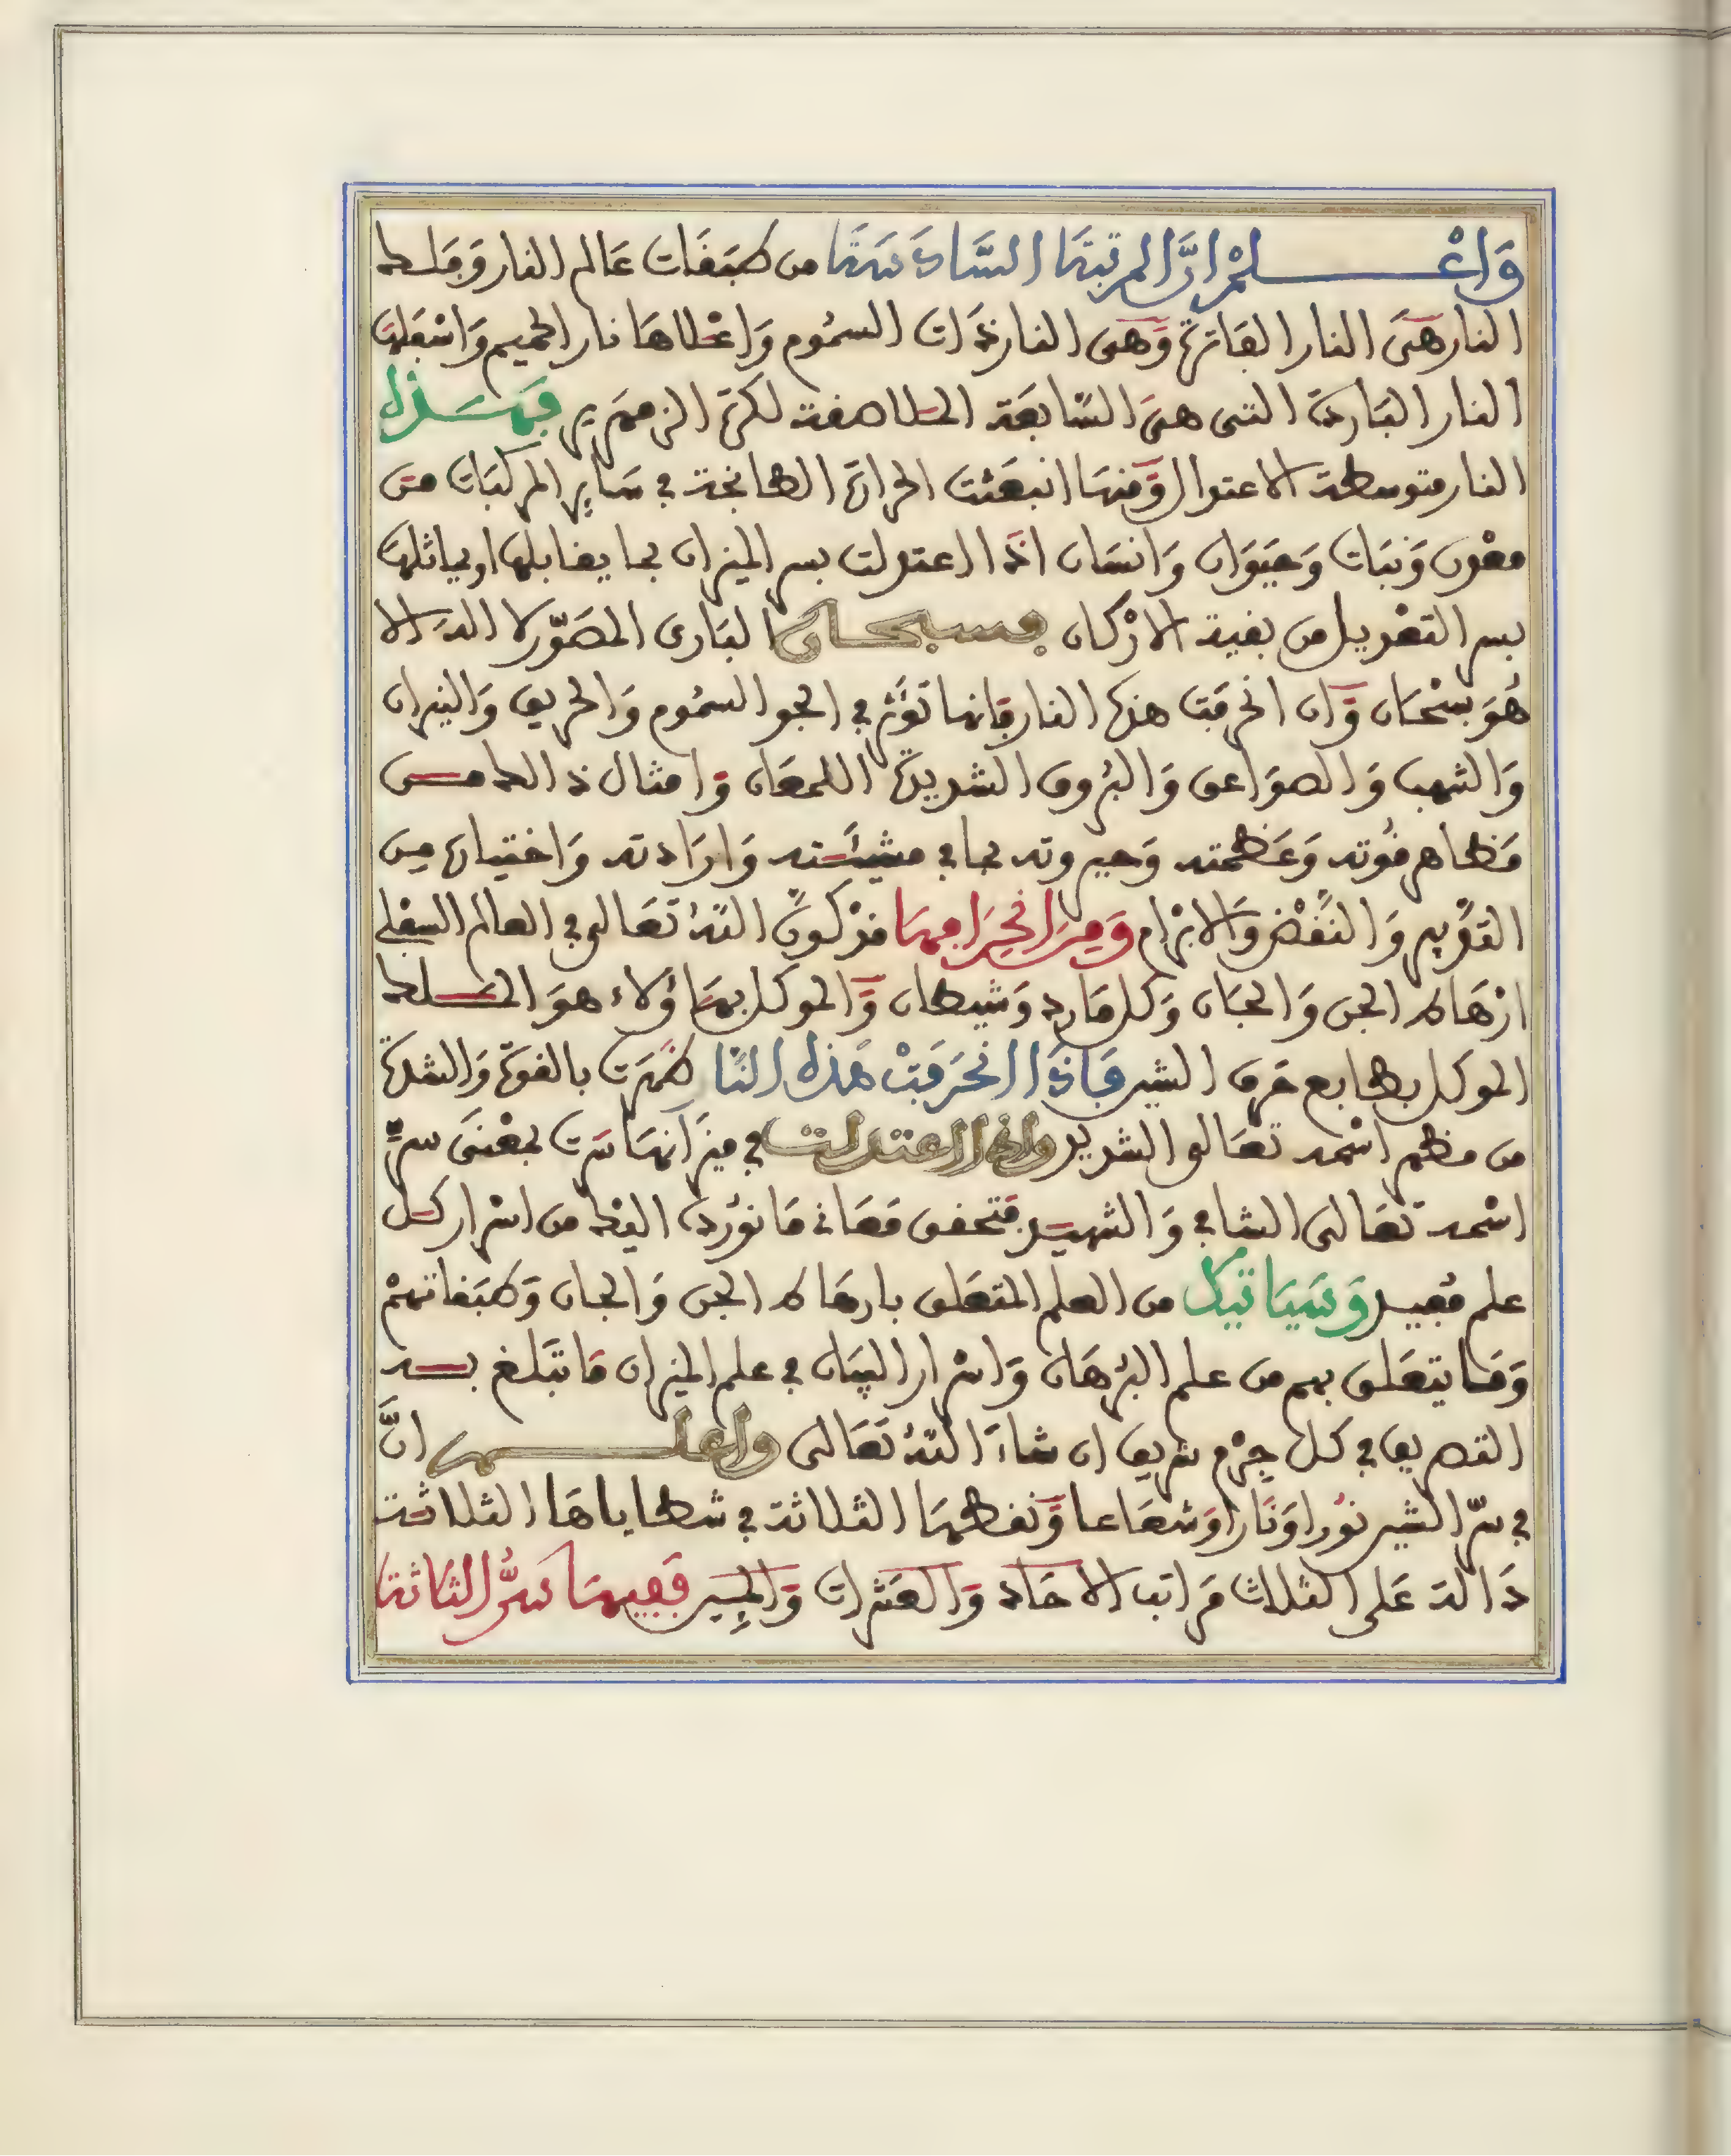 وَاعْلمْ ان المرتبة السَّادسَة من طبَقَات عَالم النار وَفلك
النار هىَ النار الفَاترة وَهى النار ذَات السمُوم وَاعْلاهَا نار الحميم وَاسْفلهَا
النار البَاردة التى هىَ السَّابعَة الملاصقة لكرة الزمهَرير فهَذه
النار متوسطة الاعتدال وَمنهَا انبعَثت الحرارة الطابخة في سَاير المركبَات من
معْدن وَنبَات وَحيَوَان وَانسَان اذَا اعتدلت بسر الميزان بما يقابلهَا او يماثلهَا
بسر التعْديل من بقية الارْكان فسبحان البَارى المصَوّر لا اله الا
هُوَ سبْحَانه وَان انحرفت هذه النار فانها توَثر في الجو السمُوم وَالحريق وَالنيران
وَالشهب وَالصوَاعق وَالبرُوق الشديدة اللمعَان وَامثال ذالك من
مَظاهر قُوته وَعَظمته وَجبروته بما في مشيئته وَارَادته وَاختياره من
القدِيم وَالنقْض وَالابْرام وَمِنَ انحِرَافهَا قدْ كونَ اللهُ تعَالى في العالم السفلى
ارْهَاط الجن وَالجَان وَكل مَارد وَشيطان وَالموكل بهَاؤلاء هوَ الملك
الموكل بطابع حرف الشين فَاذَا انحَرَفتْ هَذه النَّا ظهَرَت بالقوة وَالشدة
من مظهر اسْمه تعَالى الشديد واذا اعتدلت في ميزَانهَا سَرت بمعْنَى سرِّ
اسْمه تعَالى الشافي وَالشهيد فتحقق مَعَانى مَا نوُرده اليْك من اسْرار كل
علم مُفيد وَسَيَاتيك من العلم المتعَلق بارهَاط الجن وَالجان وَطبَقاتهمْ
وَمَا يتعَلق بهم من علم البرْهَان وَاسْرار البيَان في علم الميزان مَا تبَلغ به
التصريف في كل جِرْم شريف ان شَاءَ اللهُ تعَالى واعلم انَّ
في سرّ الشين نوُرا وَنَارا وَشعَاعا وَنقطهَا الثلاثة في شظاياهَا الثلاثة
دَالة عَلى الثلاث مَراتب الاحَاد وَالعَشرات وَالمِئين فَفيهَا سرُّ الثلاثة